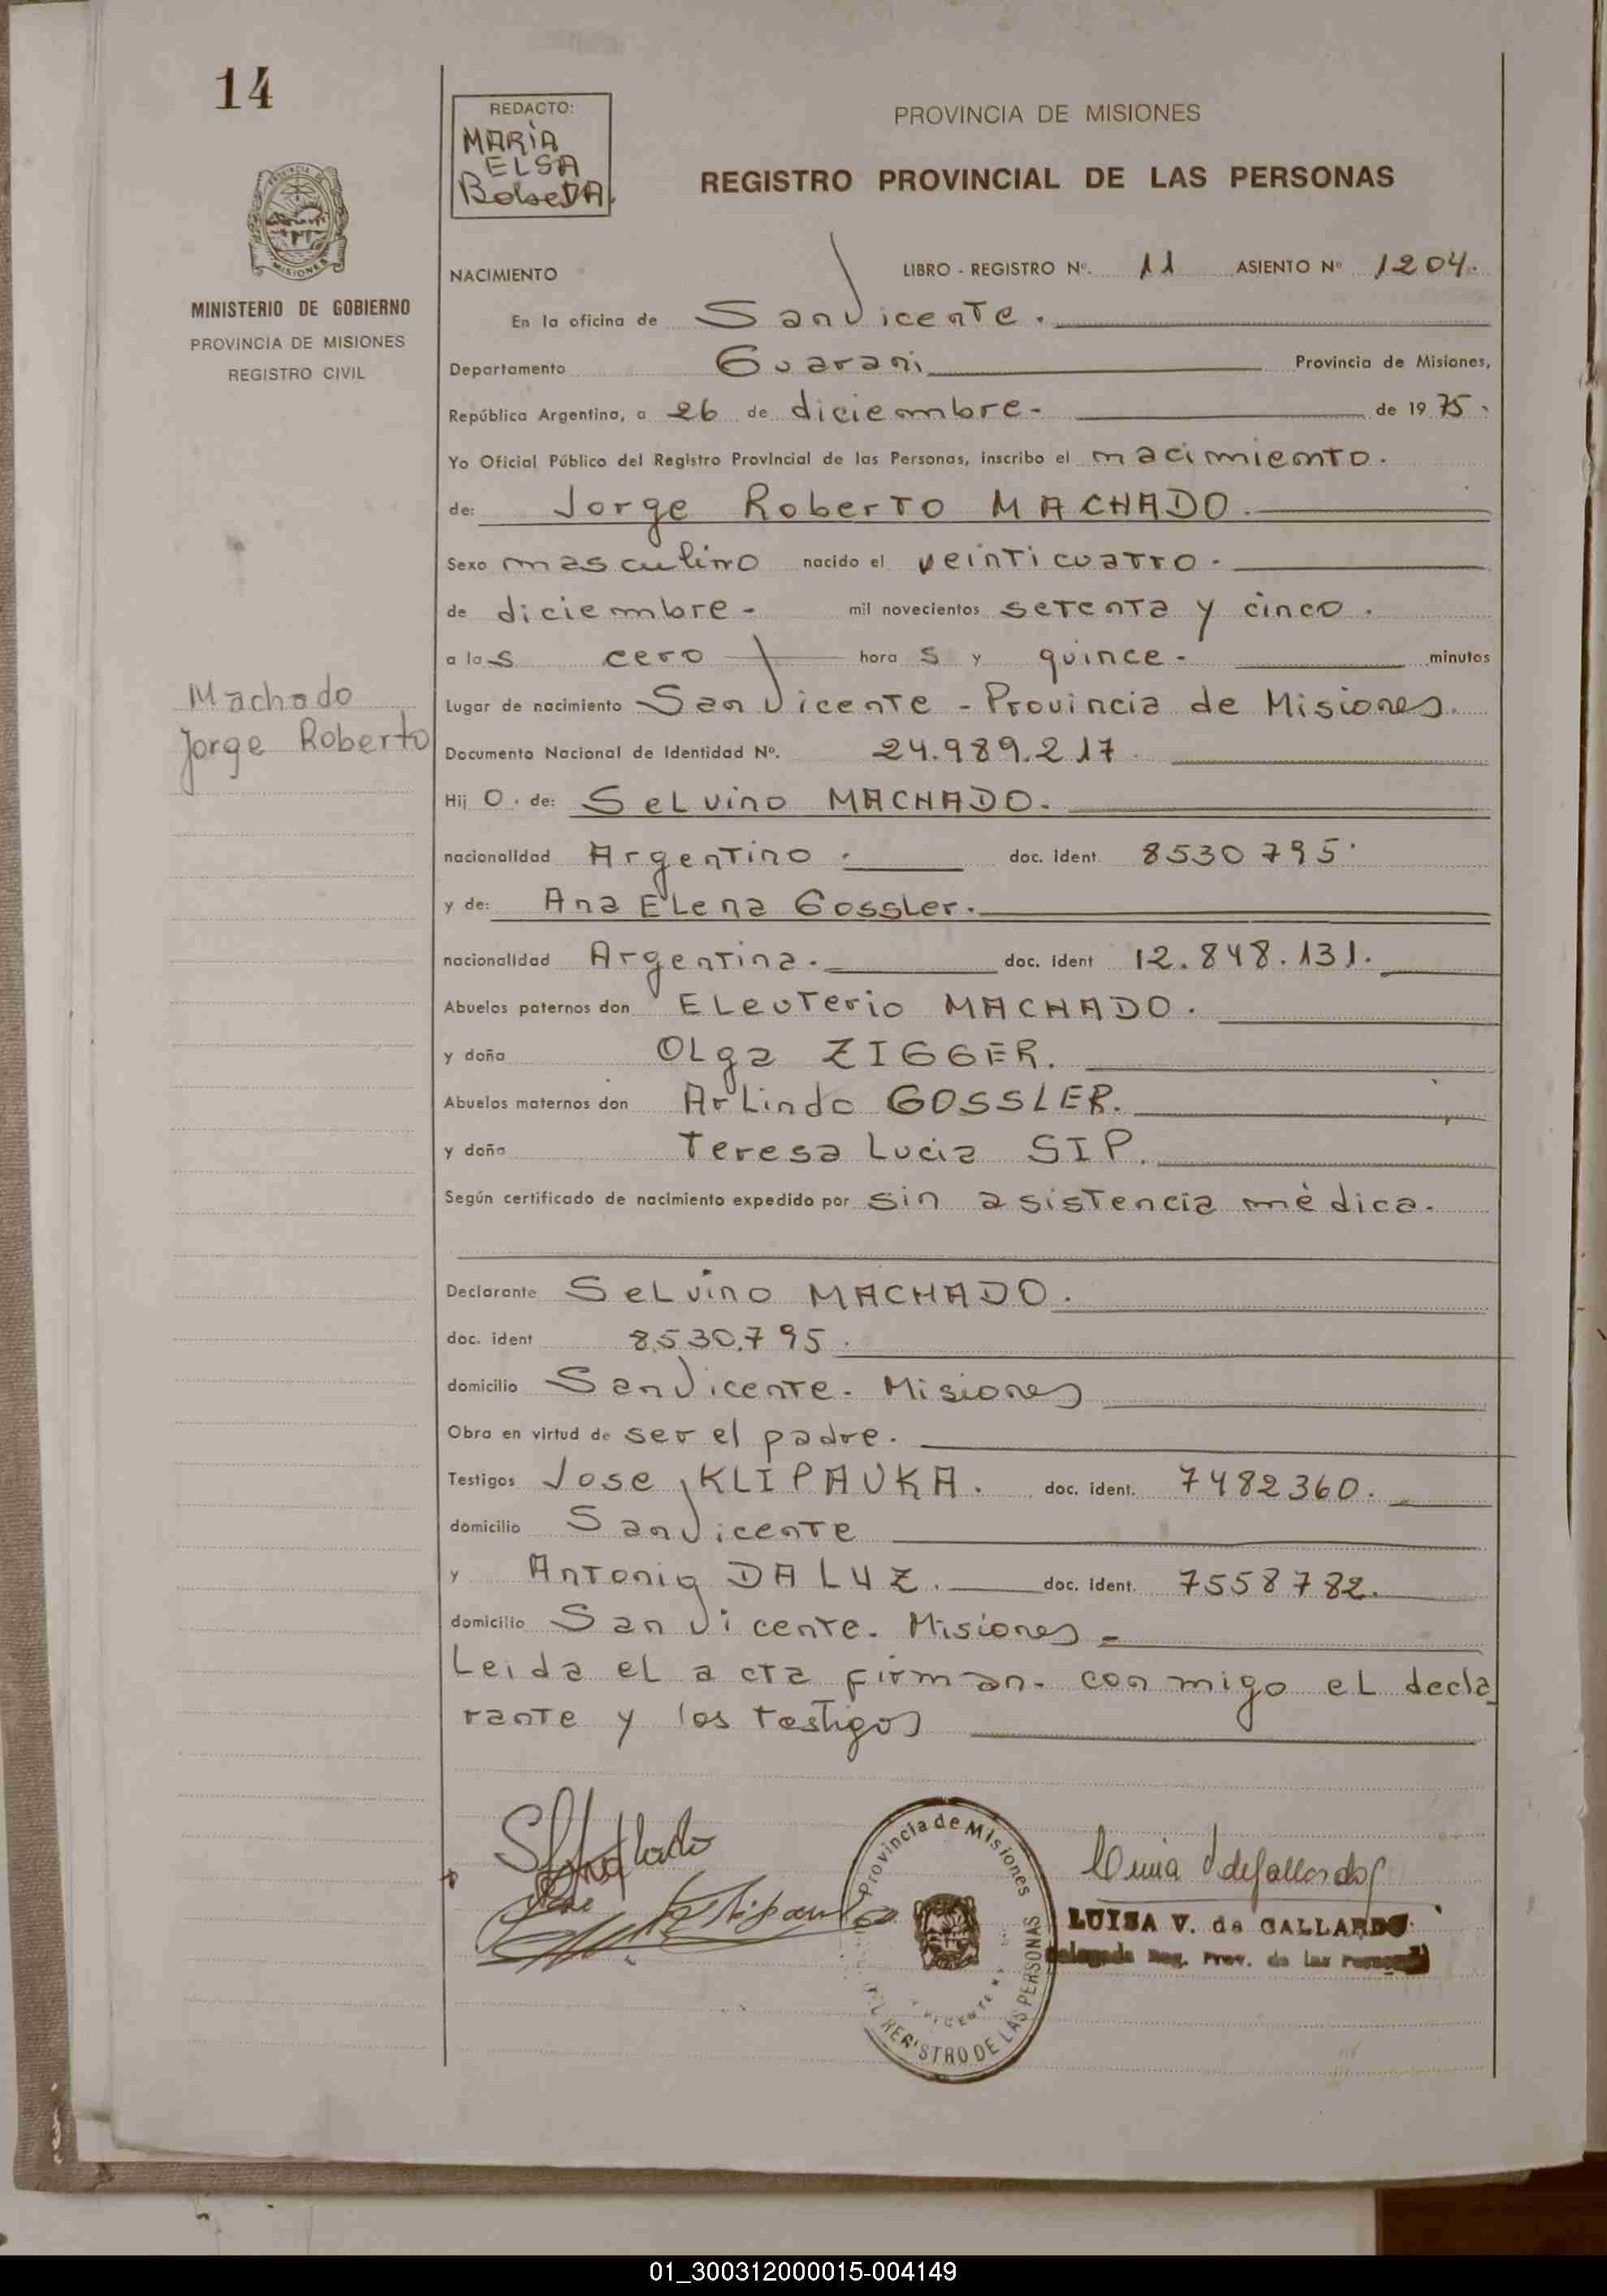 14
REDACTO:
MARÍA
ELSA
PROVINCIA DE MISIONES
REGISTRO PROVINCIAL DE LAS PERSONAS
MISIONES
MINISTERIO DE GOBIERNO
PROVINCIA DE MISIONES
REGISTRO CIVIL
NACIMIENTO
LIBRO - REGISTRO Nº. 11 ASIENTO Nº 1204.
En la oficina de San Vicente.
Departamento Guarani Provincia de Misiones,
República Argentina, a 26 de diciembre- de 1975.
Yo Oficial Público del Registro Provincial de las Personas, inscribo el nacimiento.
de: Jorge Roberto MACHADO.
Sexo masculino nacido el veinticuatro.
de diciembre- mil novecientos setenta y cinco.
a las cero horas y quince- minutos
Machado
Jorge Roberto
Lugar de nacimiento San Vicente - Provincia de Misiones.
Documento Nacional de Identidad Nº. 24.989.217
Hijo. de: Selvino MACHADO.
nacionalidad Argentino. doc. ident 8530795.
y de: Ana Elena Gossler.
nacionalidad Argentina. doc. ident 12.848.131.
Abuelos paternos don Eleuterio MACHADO.
y doña Olga ZIGGER.
Abuelos maternos don Arlindo GOSSLER.
y doña Teresa Lucia SIP.
Según certificado de nacimiento expedido por sin asistencia mèdica.
Declarante Selvino MACHADO.
doc. ident 8.530.795.
domicilio San Vicente. Misiones
Obra en virtud de ser el padre.
Testigos Jose KLIPAUKA. doc. ident. 7482360.
domicilio San Vicente
y Antonio DA LUZ. doc. ident. 7558782.
domicilio San Vicente. Misiones-
Leida el acta firman- conmigo el decla
rante y los testigos
Provincia de Misiones
REGISTRO DE LAS PERSONAS
LUISA V. de GALLARDO
Delegada Reg. Prov. de las Personas
01_300312000015-004149